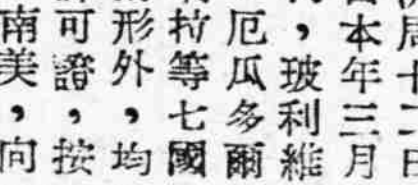 本年三月
，玻利維
厄瓜多爾
拉等七國
形外，均
可證，按
南美，向